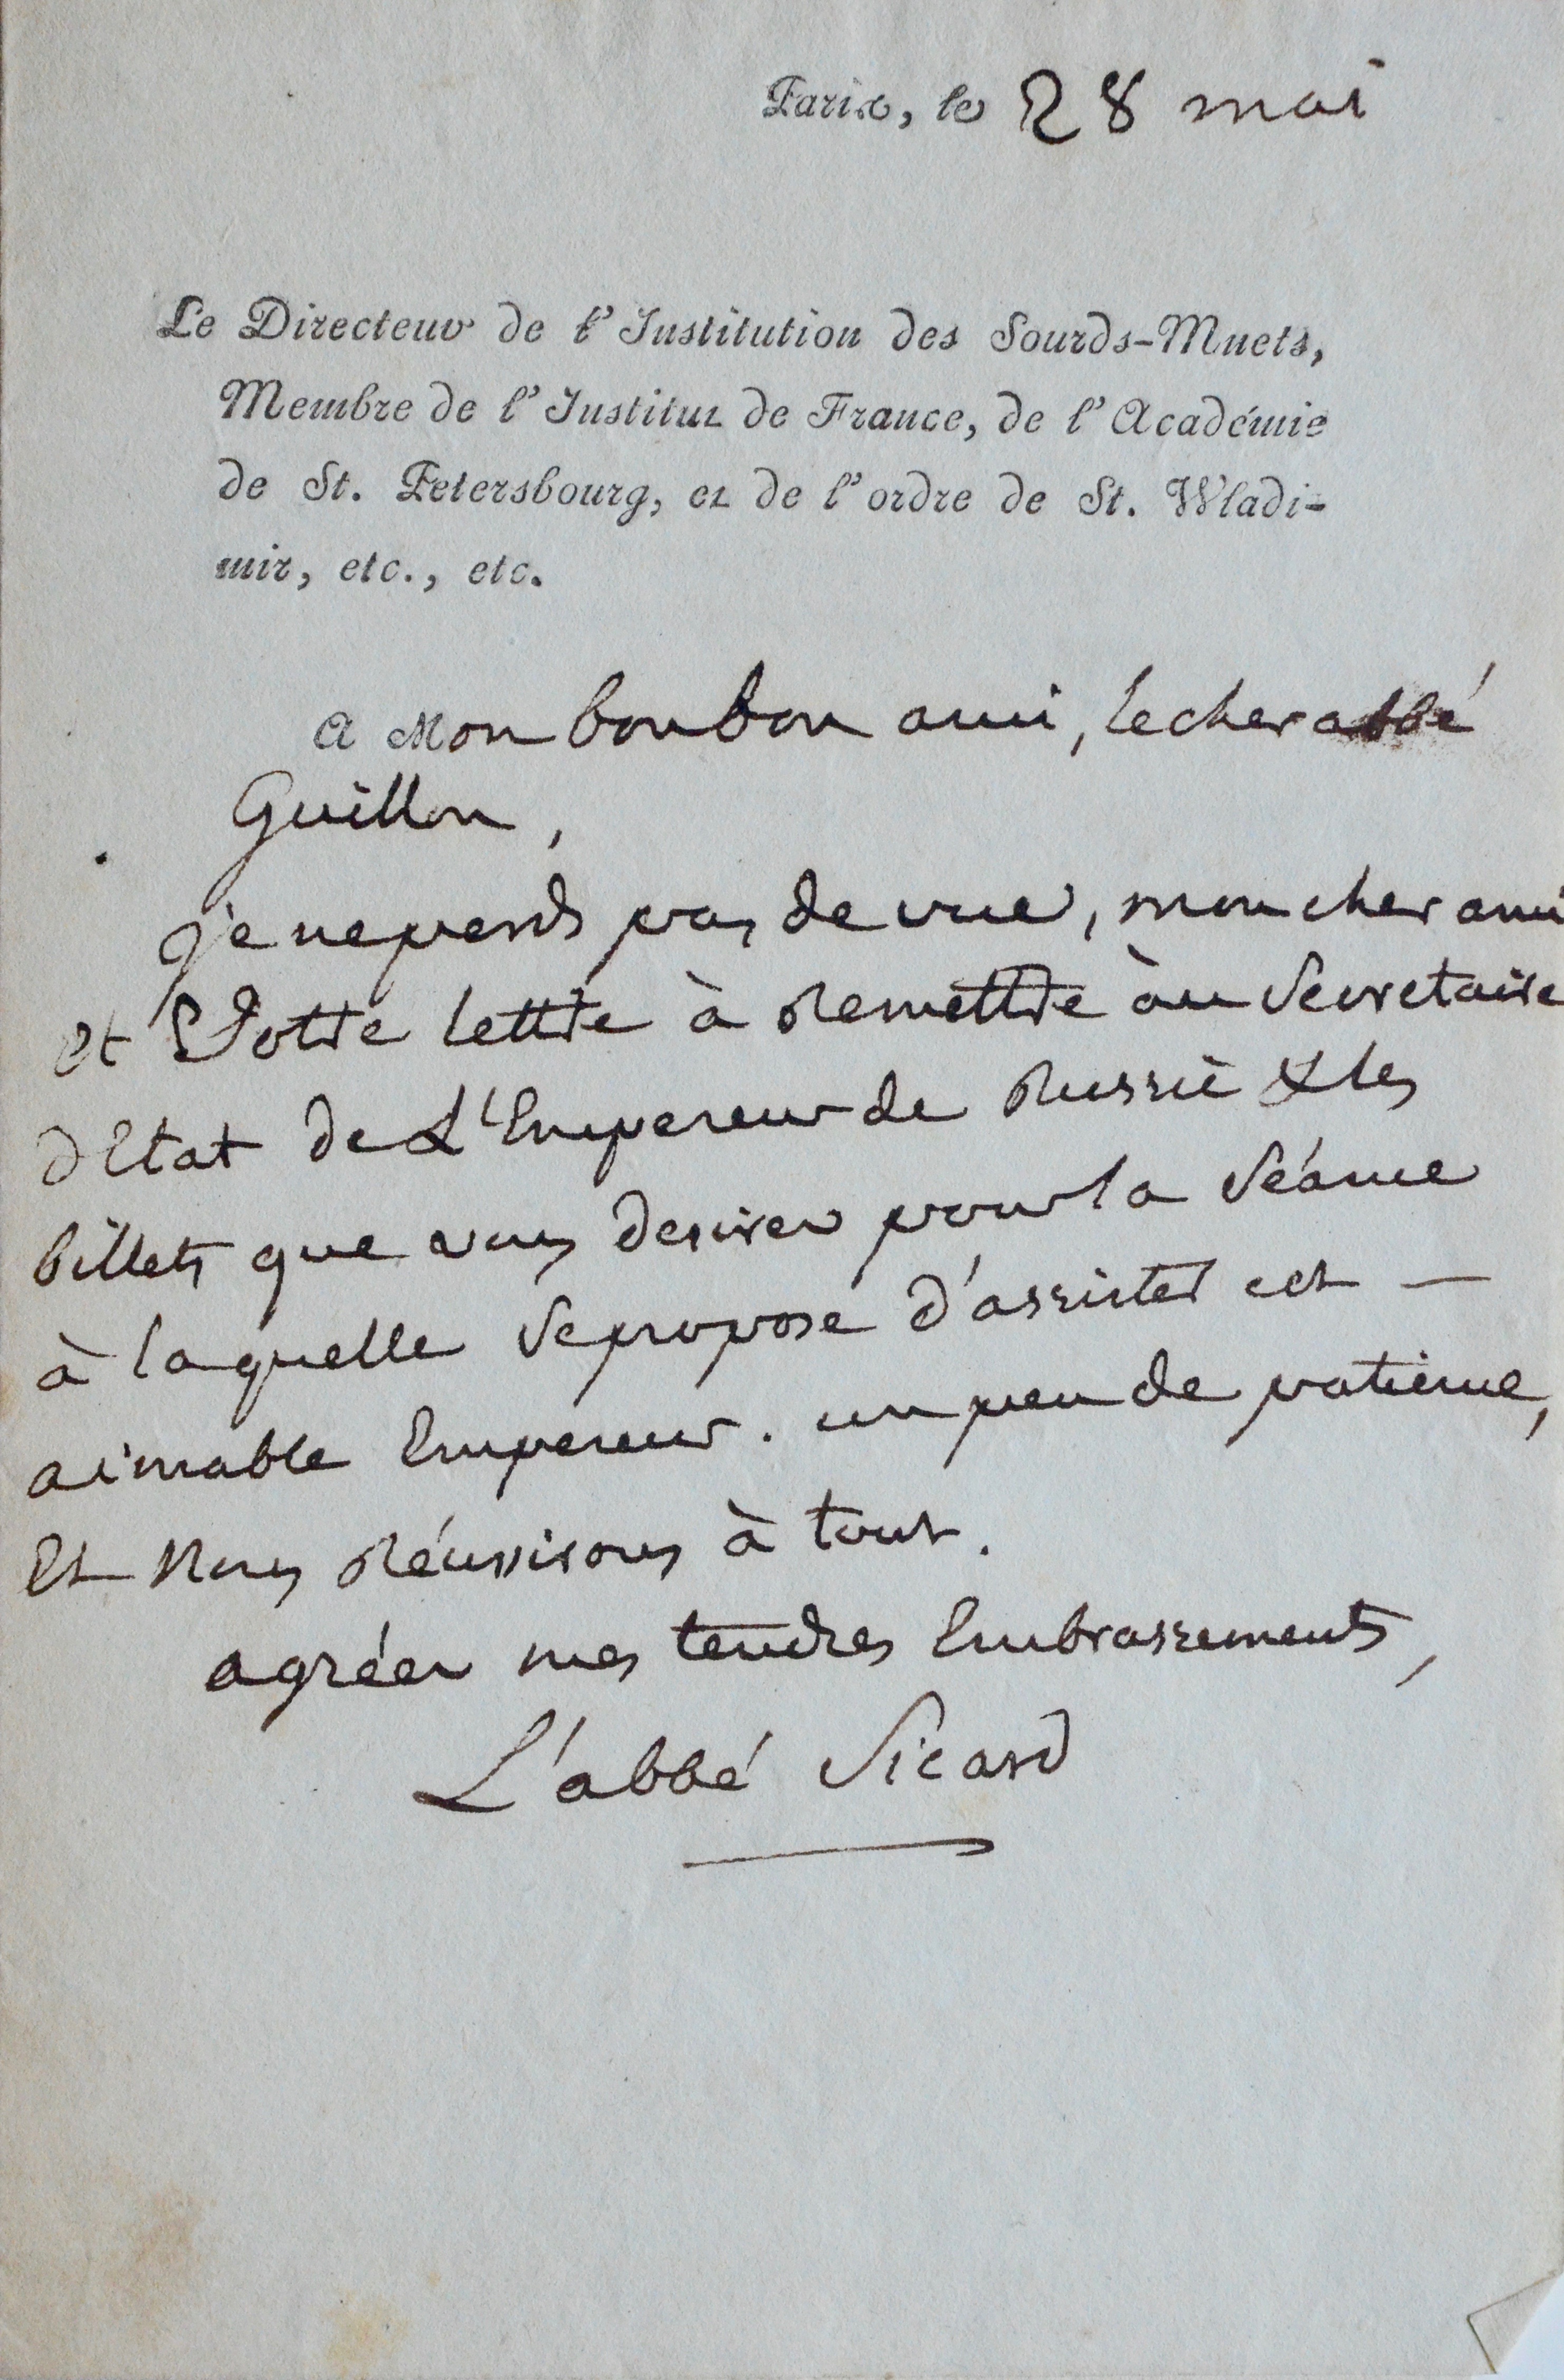 Paris, le 28 mai
Le Directeur de l'Institution des Sourds-Muets,
Membre de l'Institut de France, de l'Académie
de St. Petersbourg, et de l'ordre de St. Wladi-
mir, etc., etc.
A Mon bon bon ami, le cher abbé
Guillon,
je ne perds pas de vue, mon cher ami
et Votre lettre à Remettre àu Secretaire
d'Etat de L'Empereur de Russie & les
billets que vous desirez pour la Séance
à laquelle se propose d'assister cet —
aimable Empereur. un peu de patience,
Et Nous Réussirons à tout.
agréez mes tendres Embrassements,
L'abbé Sicard